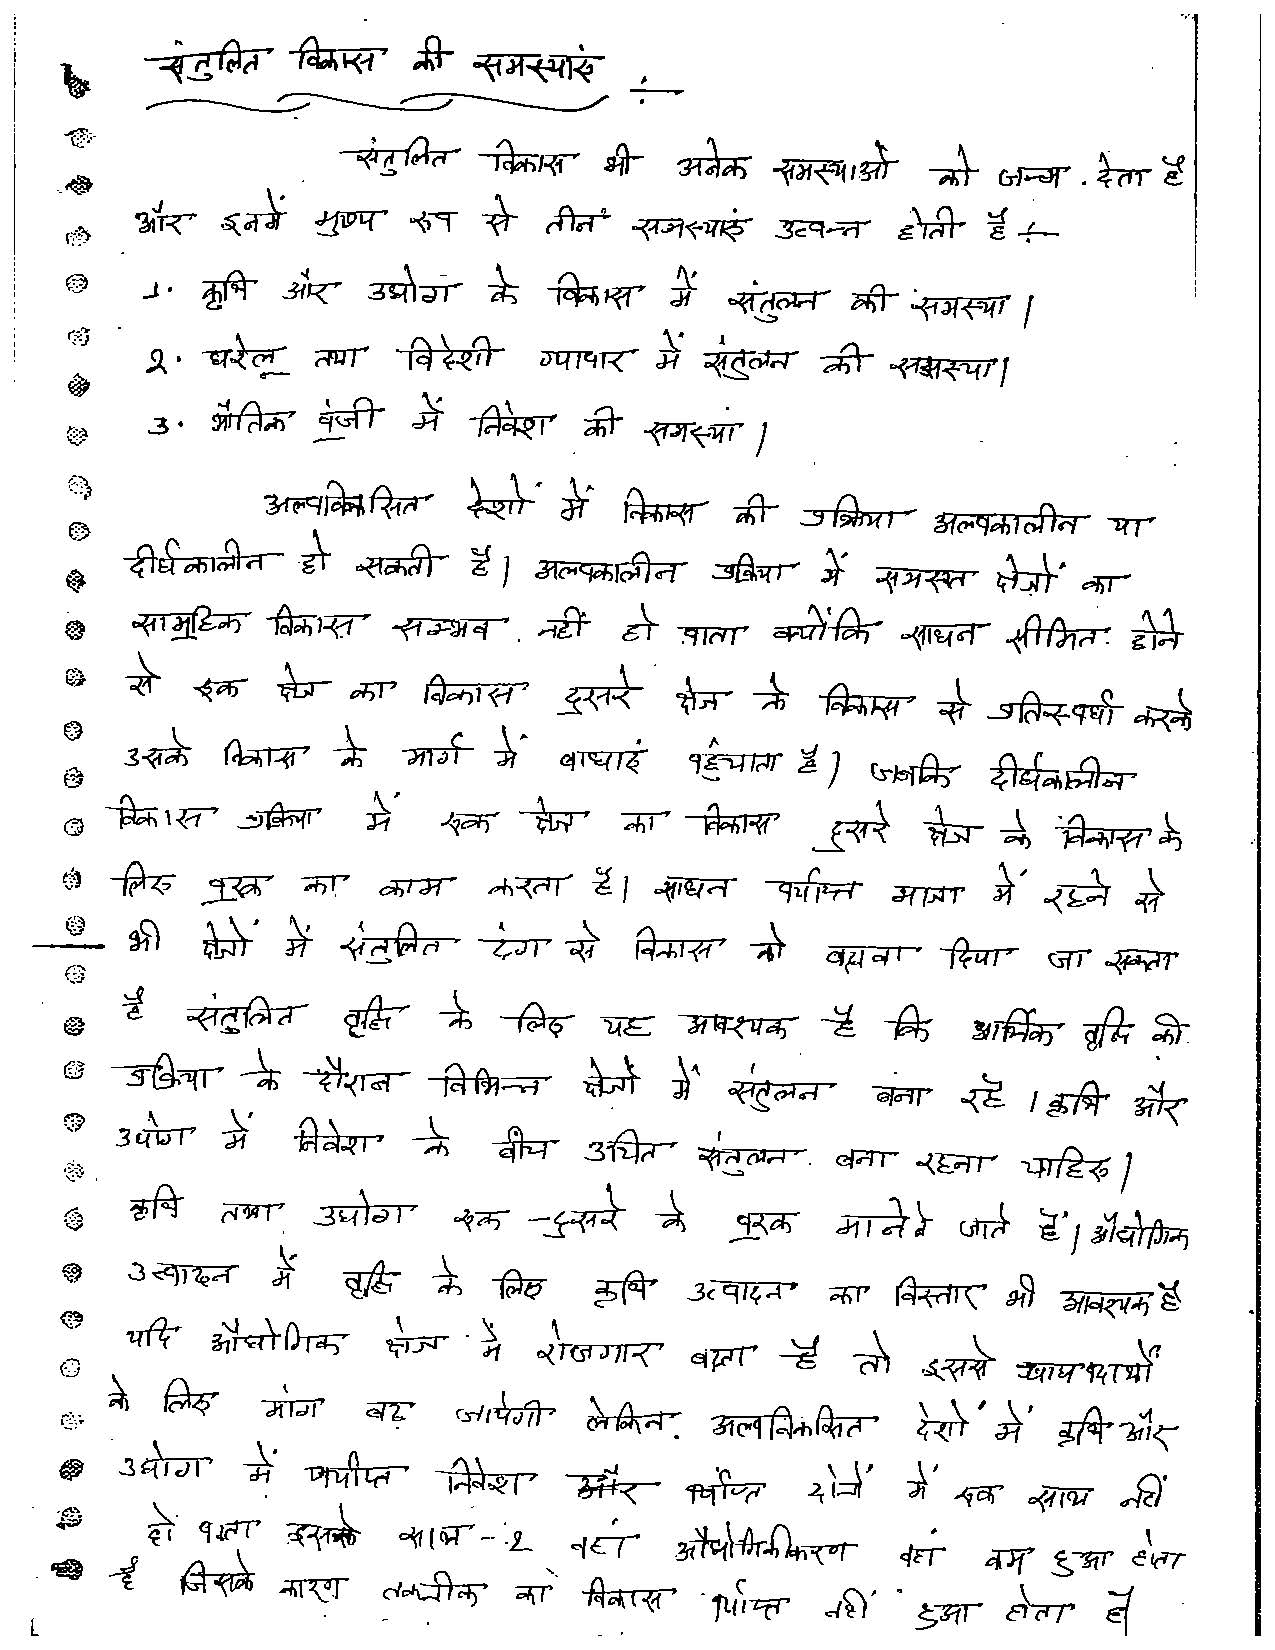 संतुलित विकास की समस्याएं :-
संतुलित विकास भी अनेक समस्याओं को जन्म देता है
और इनमें मुख्य रूप से तीन समस्याएं उत्पन्न होती है :-
1. कृषि और उद्योग के विकास में संतुलन की समस्या।
2. घरेलू तथा विदेशी व्यापार में संतुलन की समस्या।
3. भौतिक पूंजी में निवेश की समस्या।
अल्पविकसित देशों में विकास की प्रक्रिया अल्पकालीन या
दीर्घकालीन हो सकती है। अल्पकालीन प्रक्रिया में समस्त क्षेत्रों का
सामूहिक विकास सम्भव नहीं हो पाता क्योंकि साधन सीमित होने
से एक क्षेत्र का विकास दुसरे क्षेत्र के विकास से प्रतिस्पर्धा करके
उसके विकास के मार्ग में बाधाएं पहुंचाता है। जबकि दीर्घकालीन
विकास प्रक्रिया में एक क्षेत्र का विकास दुसरे क्षेत्र के विकास के
लिए पूरक का काम करता है। साधन पर्याप्त मात्रा में रहने से
भी क्षेत्रों में संतुलित ढंग से विकास को बढावा दिया जा सकता
है संतुलित वृद्धि के लिए यह आवश्यक है कि आर्थिक वृद्धि की
प्रक्रिया के दौरान विभिन्न क्षेत्रों में संतुलन बना रहे। कृषि और
उद्योग में निवेश के बीच उचित संतुलन बना रहना चाहिए।
कृषि तथा उद्योग एक-दुसरे के पूरक माने जाते हैं। औद्योगिक
उत्पादन में वृद्धि के लिए कृषि उत्पादन का विस्तार भी आवश्यक है
यदि औद्योगिक क्षेत्र में रोजगार बढता है तो इससे खाद्य पदार्थों
के लिए मांग बढ जायेगी लेकिन अल्पविकसित देशों में कृषि और
उद्योग में पर्याप्त निवेश और पर्याप्त दोनों में एक साथ नहीं
हो पाता इसके साथ-2 वहां औद्योगिकीकरण वहां कम हुआ होता
है जिसके कारण तकनीक का विकास पर्याप्त नहीं हुआ होता है